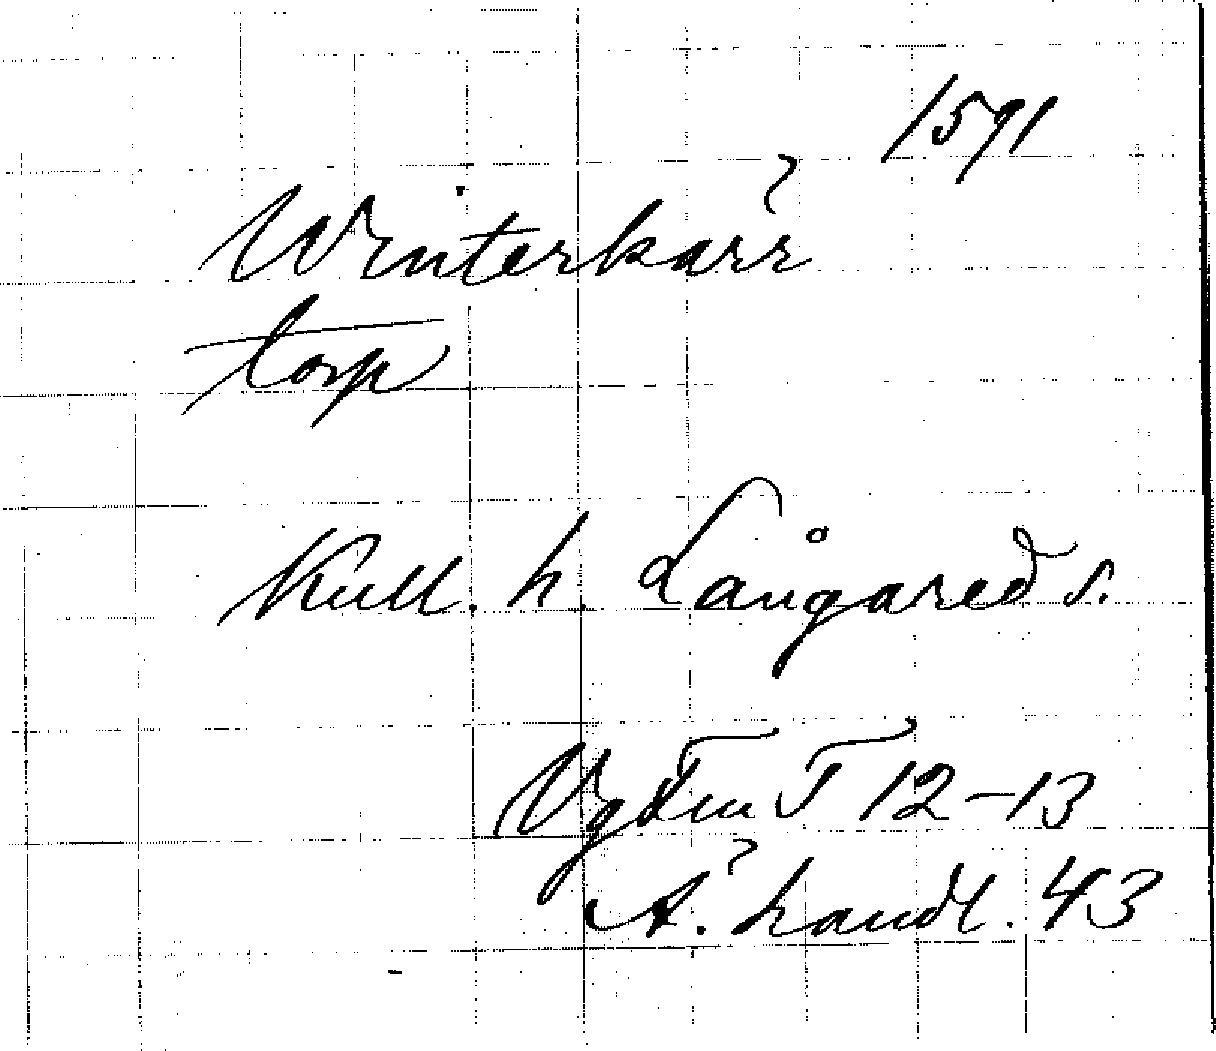 1591
Winterkärr
torp
Kull. h. Långared s.
VgFmT 12-13
Ä. handl. 43